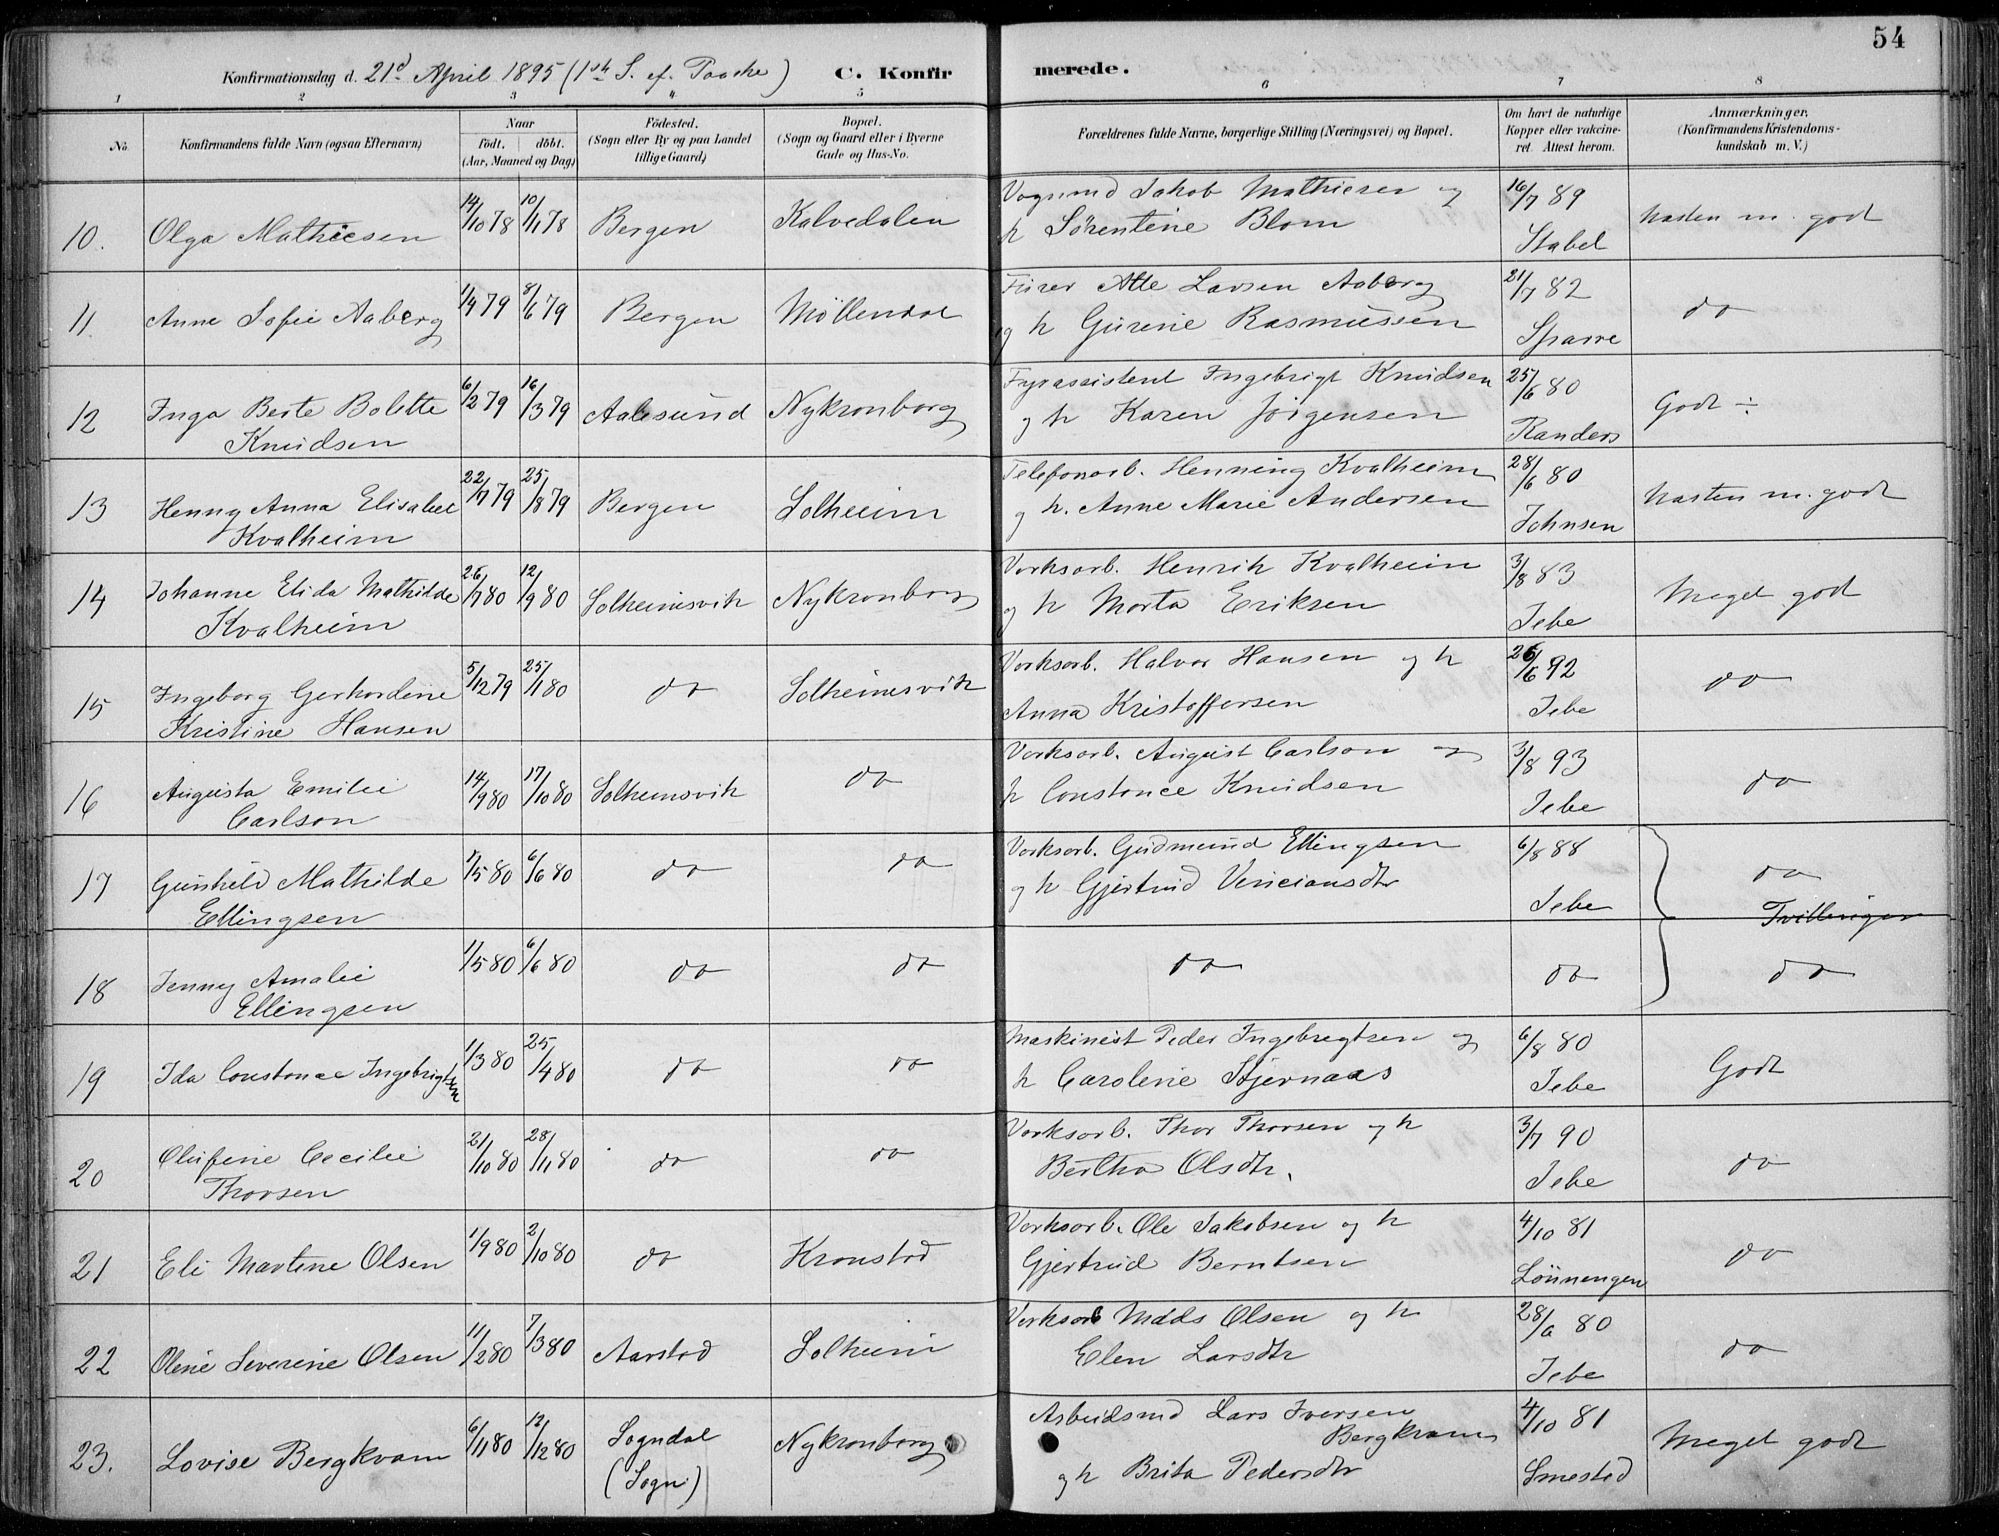 54
Konfirmationsdag d. 21d April 1895 (1ste S. ef. Paaske) C. Konfirmerede.
1 2 3 4 5 6 7 8
No. | Konfirmandens fulde Navn (ogsaa Efternavn) | Naar födt. döbt. (Aar, Maaned og Dag) | Födested. (Sogn eller By og paa Landet tillige Gaard) | Bopæl. (Sogn og Gaard eller i Byerne Gade og Hus-No. | Forældrenes fulde Navne, borgerlige Stilling (Næringsvei) og Bopæl. | Om havt de naturlige Kopper eller vakcineret. Attest herom. | Anmærkninger, (Konfirmandens Kristendomskundskab m. V.)
10. | Olga Mathiesen | 14/10 78 | 10/11 78 | Bergen | Kalvedalen | Vognmd Jakob Mathiesen og h Sörentine Blom | 16/7 89 Stabel | Næsten m. godt
11. | Anne Sofie Aaberg | 1/4 79 | 8/6 79 | Bergen | Möllendal | Fürer Atle Larsen Aaberg og h Gurine Rasmussen | 21/7 82 Sparre | do
12 | Inga Berte Bolette Knudsen | 6/2 79 | 16/3 79 | Aalesund | Nykronborg | Fyrassistent Ingebrigt Knudsen og h Karen Jörgensen | 25/6 80 Randers | Godt ÷
13 | Henny Anna Elisabet Kvalheim | 22/7 79 | 25/8 79 | Bergen | Solheim | Telefonarb. Henning Kvalheim og h. Anne Marie Andersen | 28/6 80 Johnsen | Næsten m. godt
14 | Johanne Elida Mathilde Kvalheim | 26/7 80 | 12/9 80 | Solheimsvik | Nykronborg | Verksarb. Henrik Kvalheim og h Marta Eriksen | 3/8 83 Jebe | Meget godt
15 | Ingeborg Gerhardine Kristine Hansen | 5/12 79 | 25/1 80 | do | Solheimsvik | Verksarb. Halvor Hansen og h Anna Kristoffersen | 26/6 92 Jebe | do
16 | Augusta Emilie Carlson | 14/9 80 | 17/10 80 | Solheimsvik | do | Verksarb. August Carlson og h Constance Knudsen | 3/8 93 Jebe | do
17 | Gunhild Mathilde Ellingsen | 1/5 80 | 6/6 80 | do | do | Verksarb. Gudmund Ellingsen og h Gjertrud Venciansdtr | 6/8 88 Jebe | do Tvillinger
18 | Jenny Amalie Ellingsen | 1/5 80 | 6/6 80 | do | do | do | do | do
19 | Ida Constance Ingebrigtsen | 1/3 80 | 25/4 80 | do | do | Maskinist Peder Ingebregtsen og h Caroline Stjernaas | 6/8 80 Jebe | Godt
20 | Olufine Cecilie Thorsen | 21/10 80 | 28/11 80 | do | do | Verksarb. Thor Thorsen og h Bertha Olsdtr, | 3/7 90 Jebe | do
21 | Eli Martine Olsen | 1/9 80 | 2/10 80 | do | Kronstad | Verksarb. Ole Jakobsen og h Gjertrud Berntsen | 4/10 81 Lönnengen | do
22 | Oline Severine Olsen | 11/2 80 | 7/3 80 | Aarstad | Solheim | Verksarb Mads Olsen og h Elen Larsdtr | 28/6 80 Jebe | do
23. | Lovise Bergkvam | 6/11 80 | 12/12 80 | Sogndal (Sogn) | Nykronborg | Arbeidsmd Lars Iversen Bergkvam og h Brita Pedersdtr | 4/10 81 Smestad | Meget godt